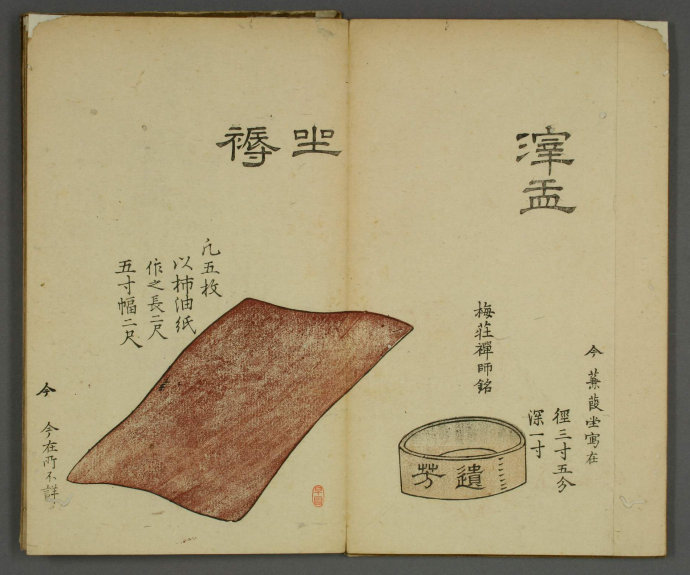 滓盂
今 蒹葭堂寓在
徑三寸五分
深一寸
梅莊禪師銘
遺芳
坐褥
凢五枚
以柿油紙
作之長二尺
五寸幅二尺
今
今在所不詳